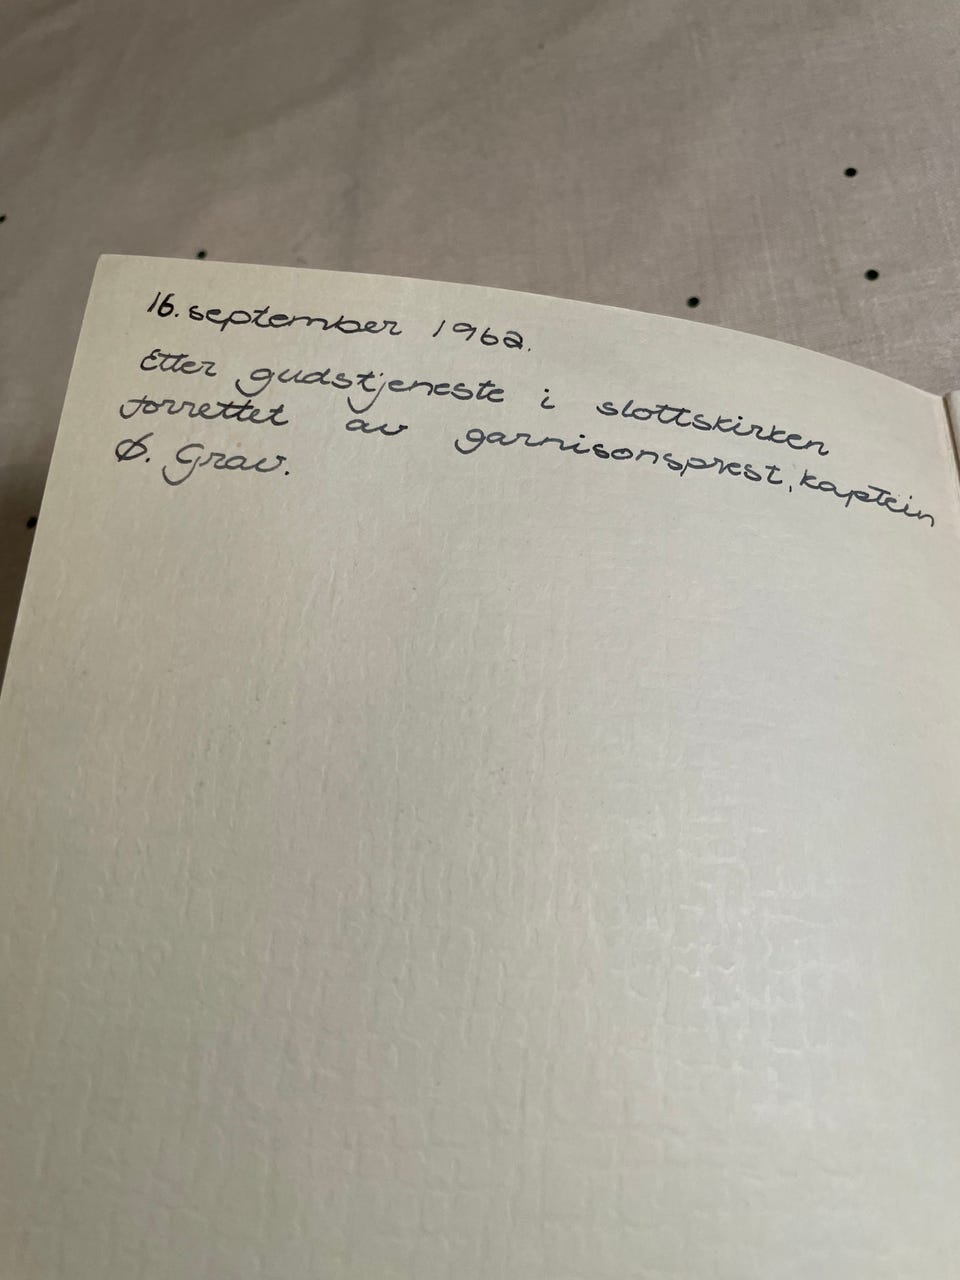 16. september 1962.
Etter gudstjeneste i slottskirken
forrettet av garnisonsprest, kaptein
Ø. Grav.